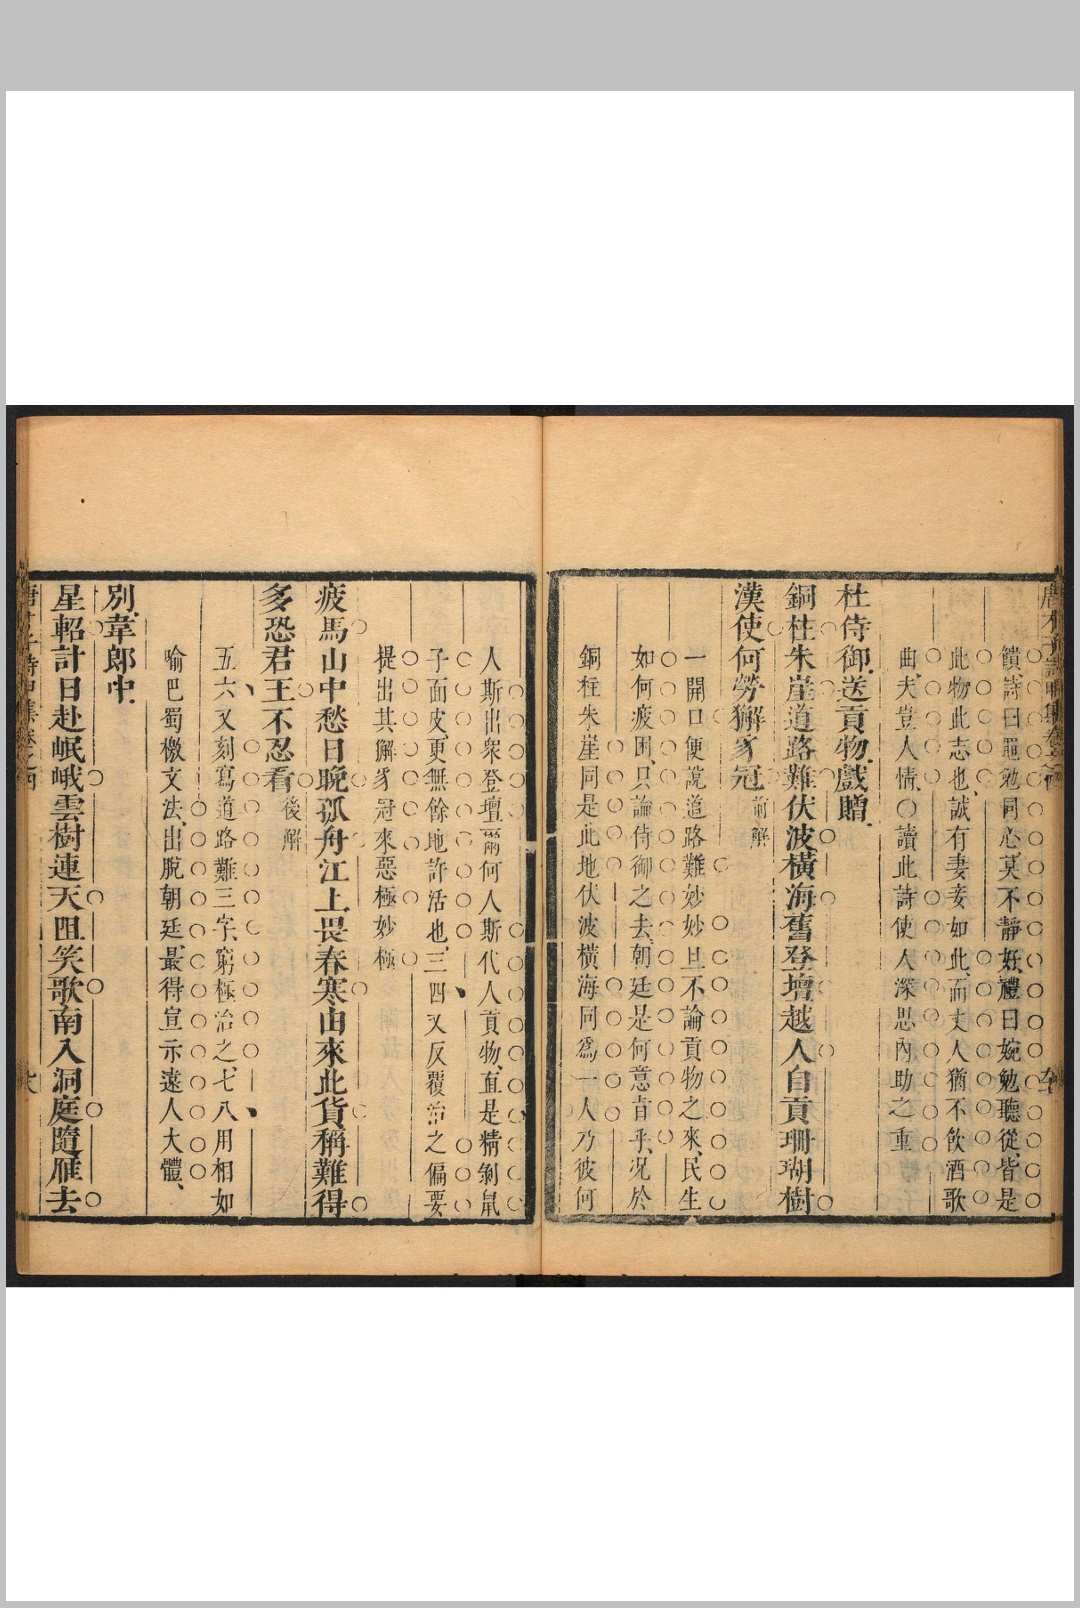 饋詩曰黽勉同心莫不靜好禮曰婉勉聽從皆是
此物此志也誠有妻妾如此而丈人猶不飲酒歌
曲夫豈人情○讀此詩使人深思內助之重
杜侍御送貢物戲贈
銅柱朱崖道路難伏波橫海舊登壇越人自貢珊瑚樹
漢使何勞獬豸冠前解
一開口便說道路難妙妙且不論貢物之來民生
如何疲困只論侍御之去朝廷是何意旨乎況於
銅柱朱崖同是此地伏波橫海同爲一人乃彼何
人斯出衆登壇爾何人斯代人貢物直是精剝鼠
子面皮更無餘地許活也三四又反覆治之偏要
提出其獬豸冠來惡極妙極
疲馬山中愁日晚孤舟江上畏春寒由來此貨稱難得
多恐君王不忍看後解
五六又刻寫道路難三字窮極治之七八用相如
喻巴蜀檄文法出脫朝廷最得宣示遠人大體
別韋郎中
星軺計日赴岷峨雲樹連天阻笑歌南入洞庭隨雁去